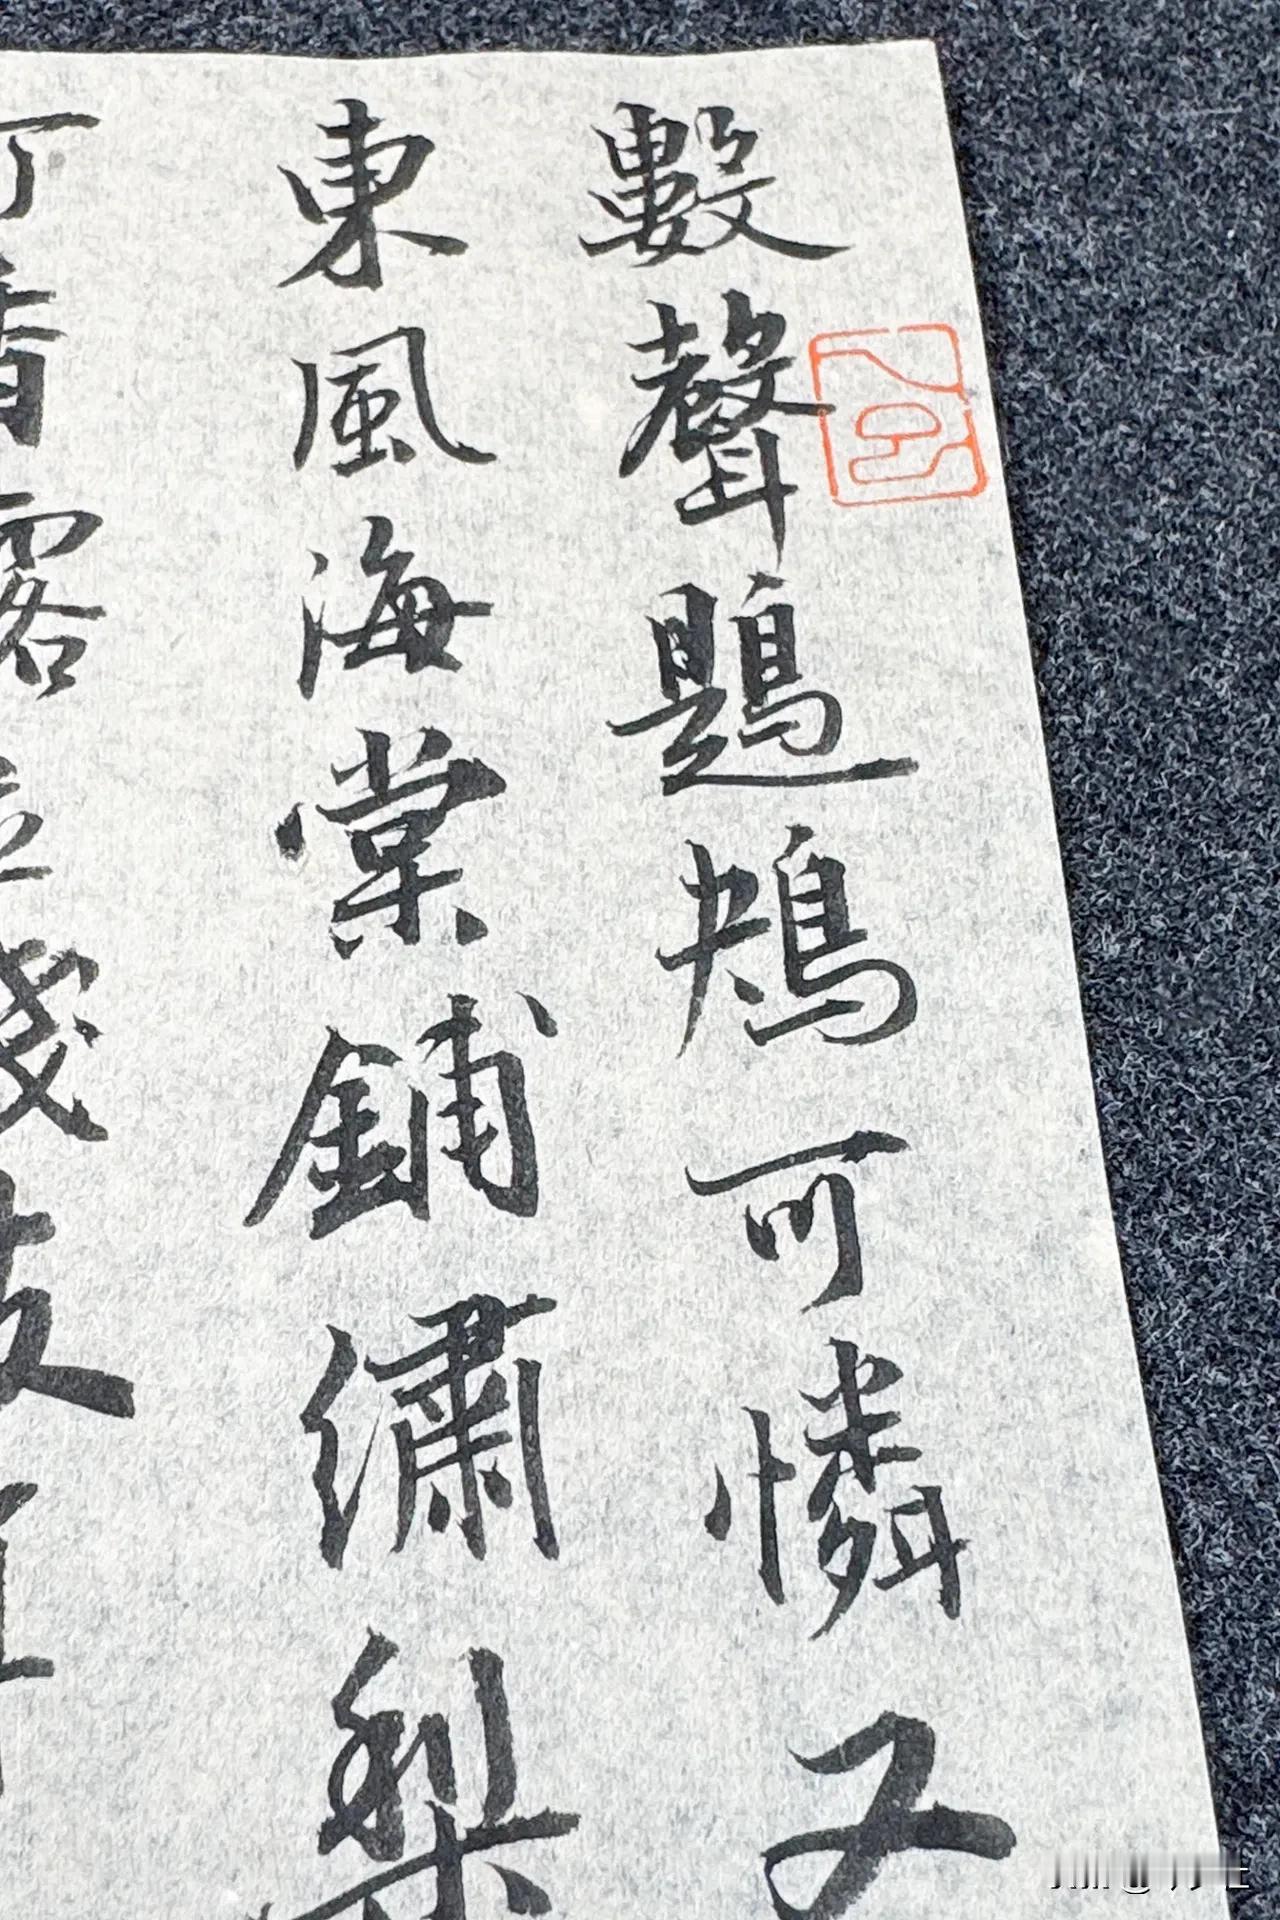 數聲鶗鴂可憐又
東風海棠鋪繡梨
丁香露